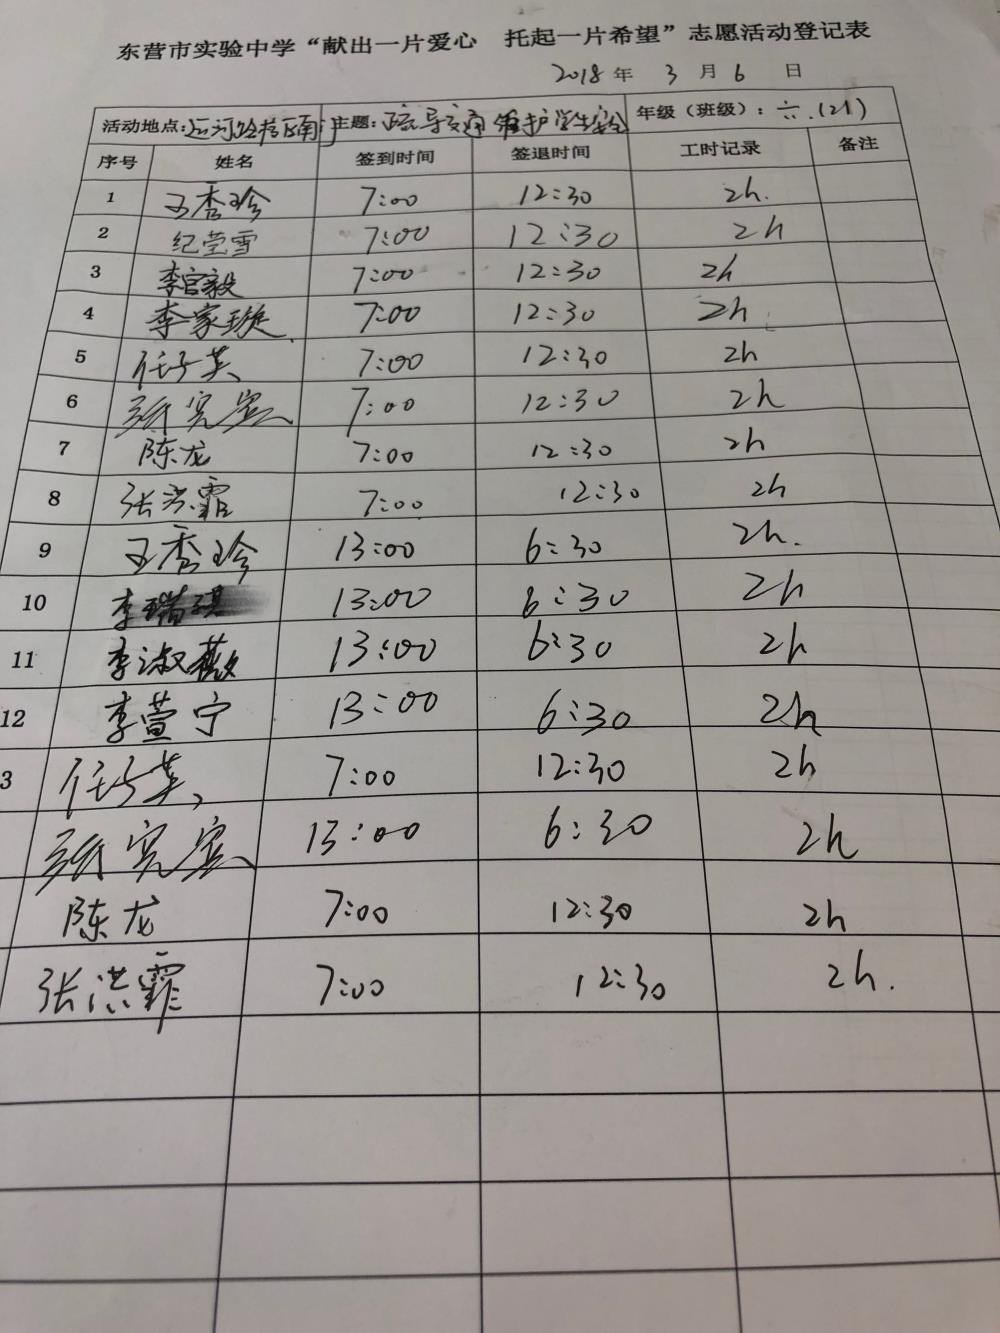 东营市实验中学“献出一片爱心 托起一片希望”志愿活动登记表
2018年 3月6日
活动地点: 运河路校区南门 主题: 疏导交通 维护学生安全 年级（班级）: 六.(21)
序号 姓名 签到时间 签退时间 工时记录 备注
1 王秀珍 7:00 12:30 2h.
2 纪莹雪 7:00 12:30 2h
3 李官毅 7:00 12:30 2h
4 李家璇 7:00 12:30 2h
5 任子英 7:00 12:30 2h
6 7:00 12:30 2h
7 陈龙 7:00 12:30 2h
8 张洪霏 7:00 12:30 2h
9 王秀珍 13:00 6:30 2h.
10 李瑞琪 13:00 6:30 2h
11 李淑薇 13:00 6:30 2h
12 李萱宁 13:00 6:30 2h
3 任子英 7:00 12:30 2h
13:00 6:30 2h
陈龙 7:00 12:30 2h
张洪霏 7:00 12:30 2h.